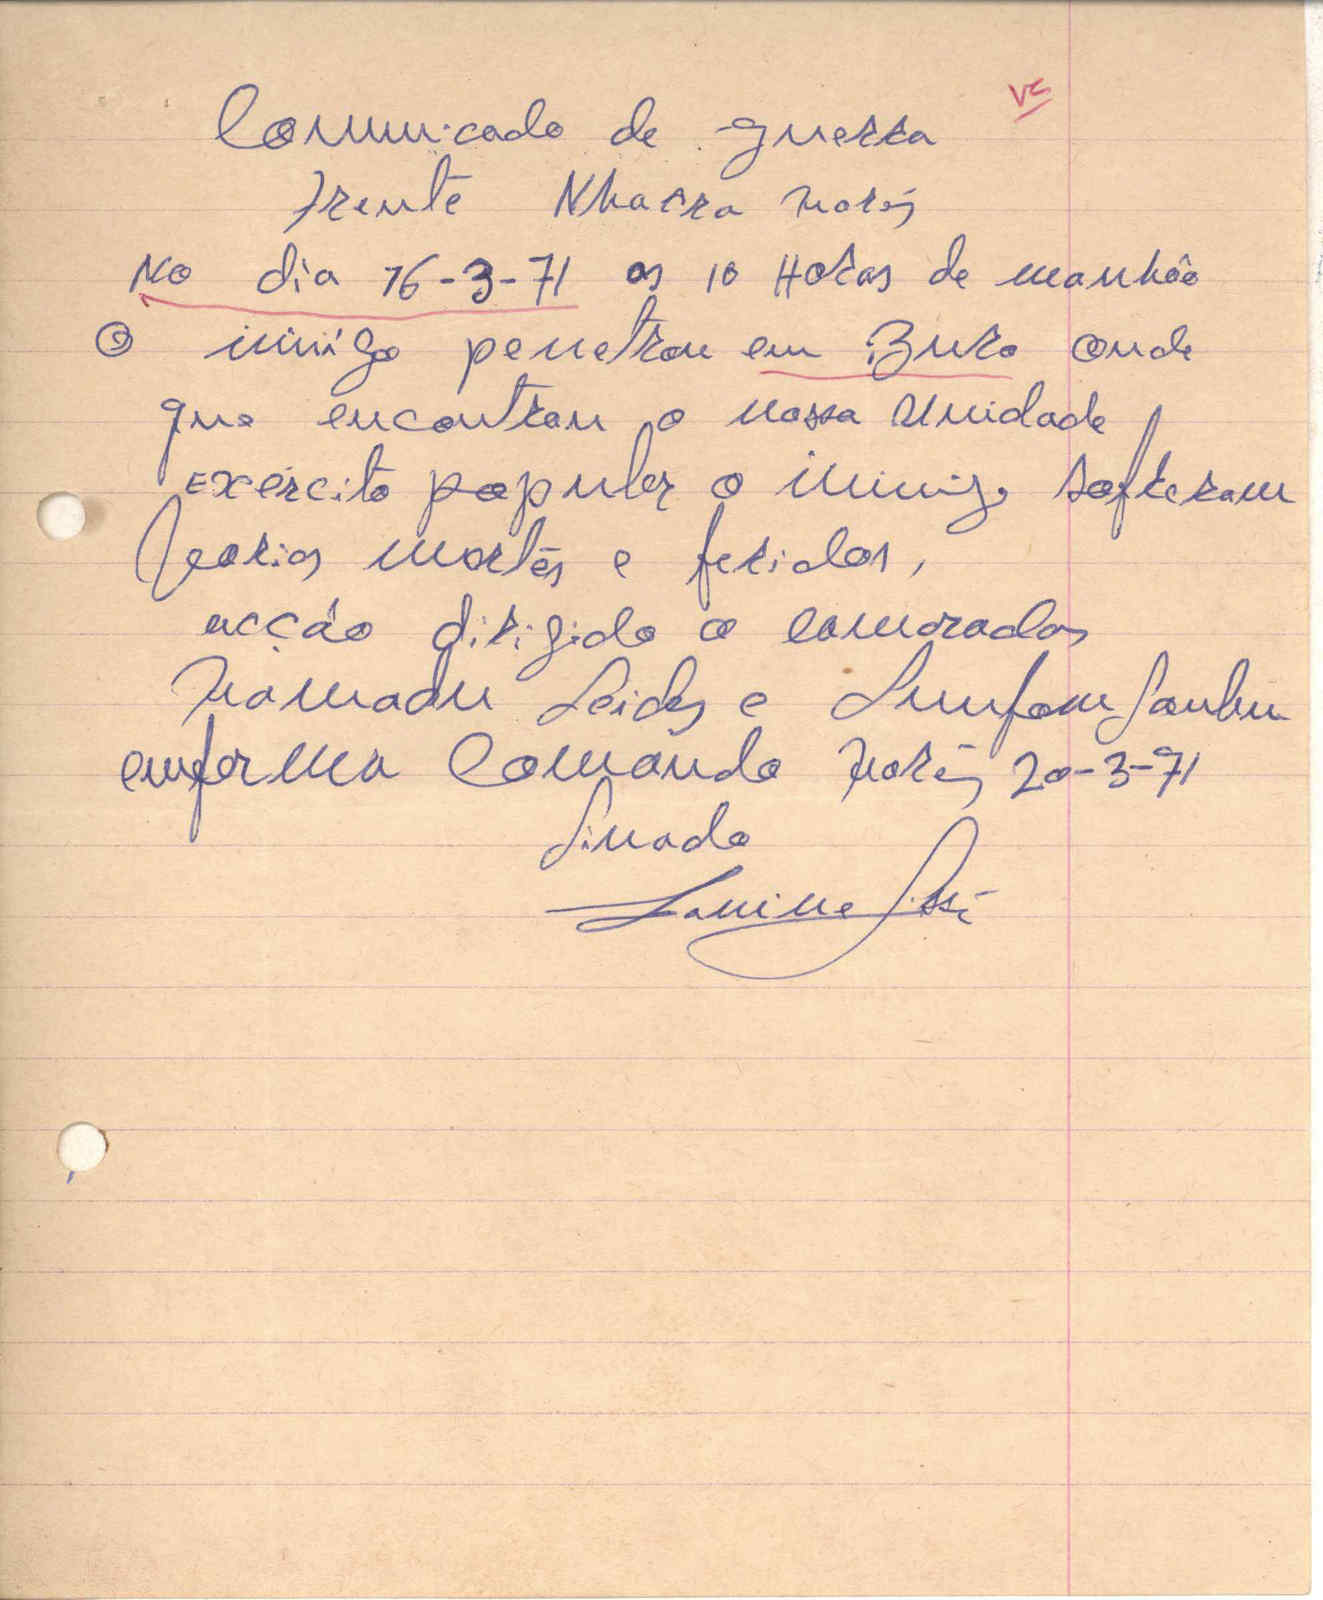 vc
Comunicado de guerra
Frente Nhacra Morés
No dia 16-3-71 as 10 Horas de manhão
O inimigo penetrou em Buro onde
que encontrou o nossa Unidade
Exército popular o inimigo sofreram
varios mortes e feridos,
acção dirigido a camaradas
Mamadu Seidy e
enforma Comando Morés 20-3-71
Sinado
Lamine Sissé